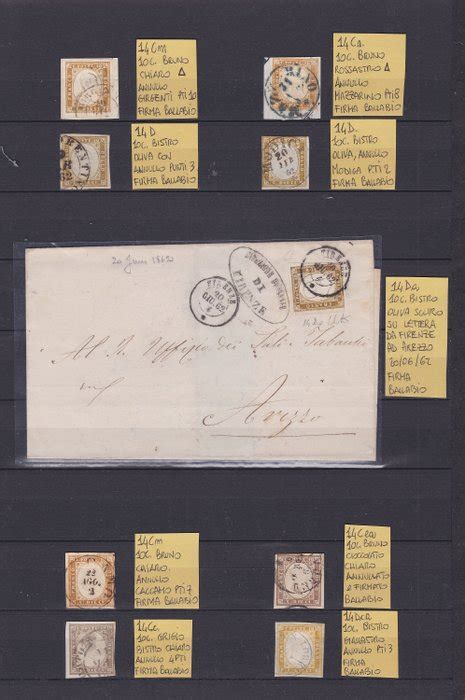 14Cm
10C. BRUNO
CHIARO Δ
ANNULLO
GIRGENTI PTI 10
FIRMA BALLABIO
14Ca.
10C. BRUNO
ROSSASTRO Δ
ANNULLO
MAZZARINO PTI 8
FIRMA BALLABIO
14D
10C. BISTRO
OLIVA CON
ANNULLO PUNTI 3
FIRMA BALLABIO
14D.
10C. BISTRO
OLIVA, ANNULLO
MODICA PTI 2
FIRMA BALLABIO
20
62
20 Juni 1862
DI
FIRENZE
FIRENZE
20
GIU 62
FIRENZE
Al R. Uffizio dei Sali e Tabacchi
Arezzo
14Da
10C. BISTRO
OLIVA SCURO
SU LETTERA
DA FIRENZE
AD AREZZO
20/06/62
FIRMA
BALLABIO
14Cm
10C. BRUNO
CHIARO.
ANNULLO
CACCAMO PTI 7
FIRMA BALLABIO
23
AGO.
10C. BRUNO
CIOCCOLATO
CHIARO
ANNULLATO
E FIRMATO
BALLABIO
10C. GRIGIO
BISTRO CHIARO
ANNULLO 4PTI
FIRMA BALLABIO
14Dca
10C. BISTRO
GIALLASTRO
ANNULLO PTI 3
FIRMA
BALLABIO